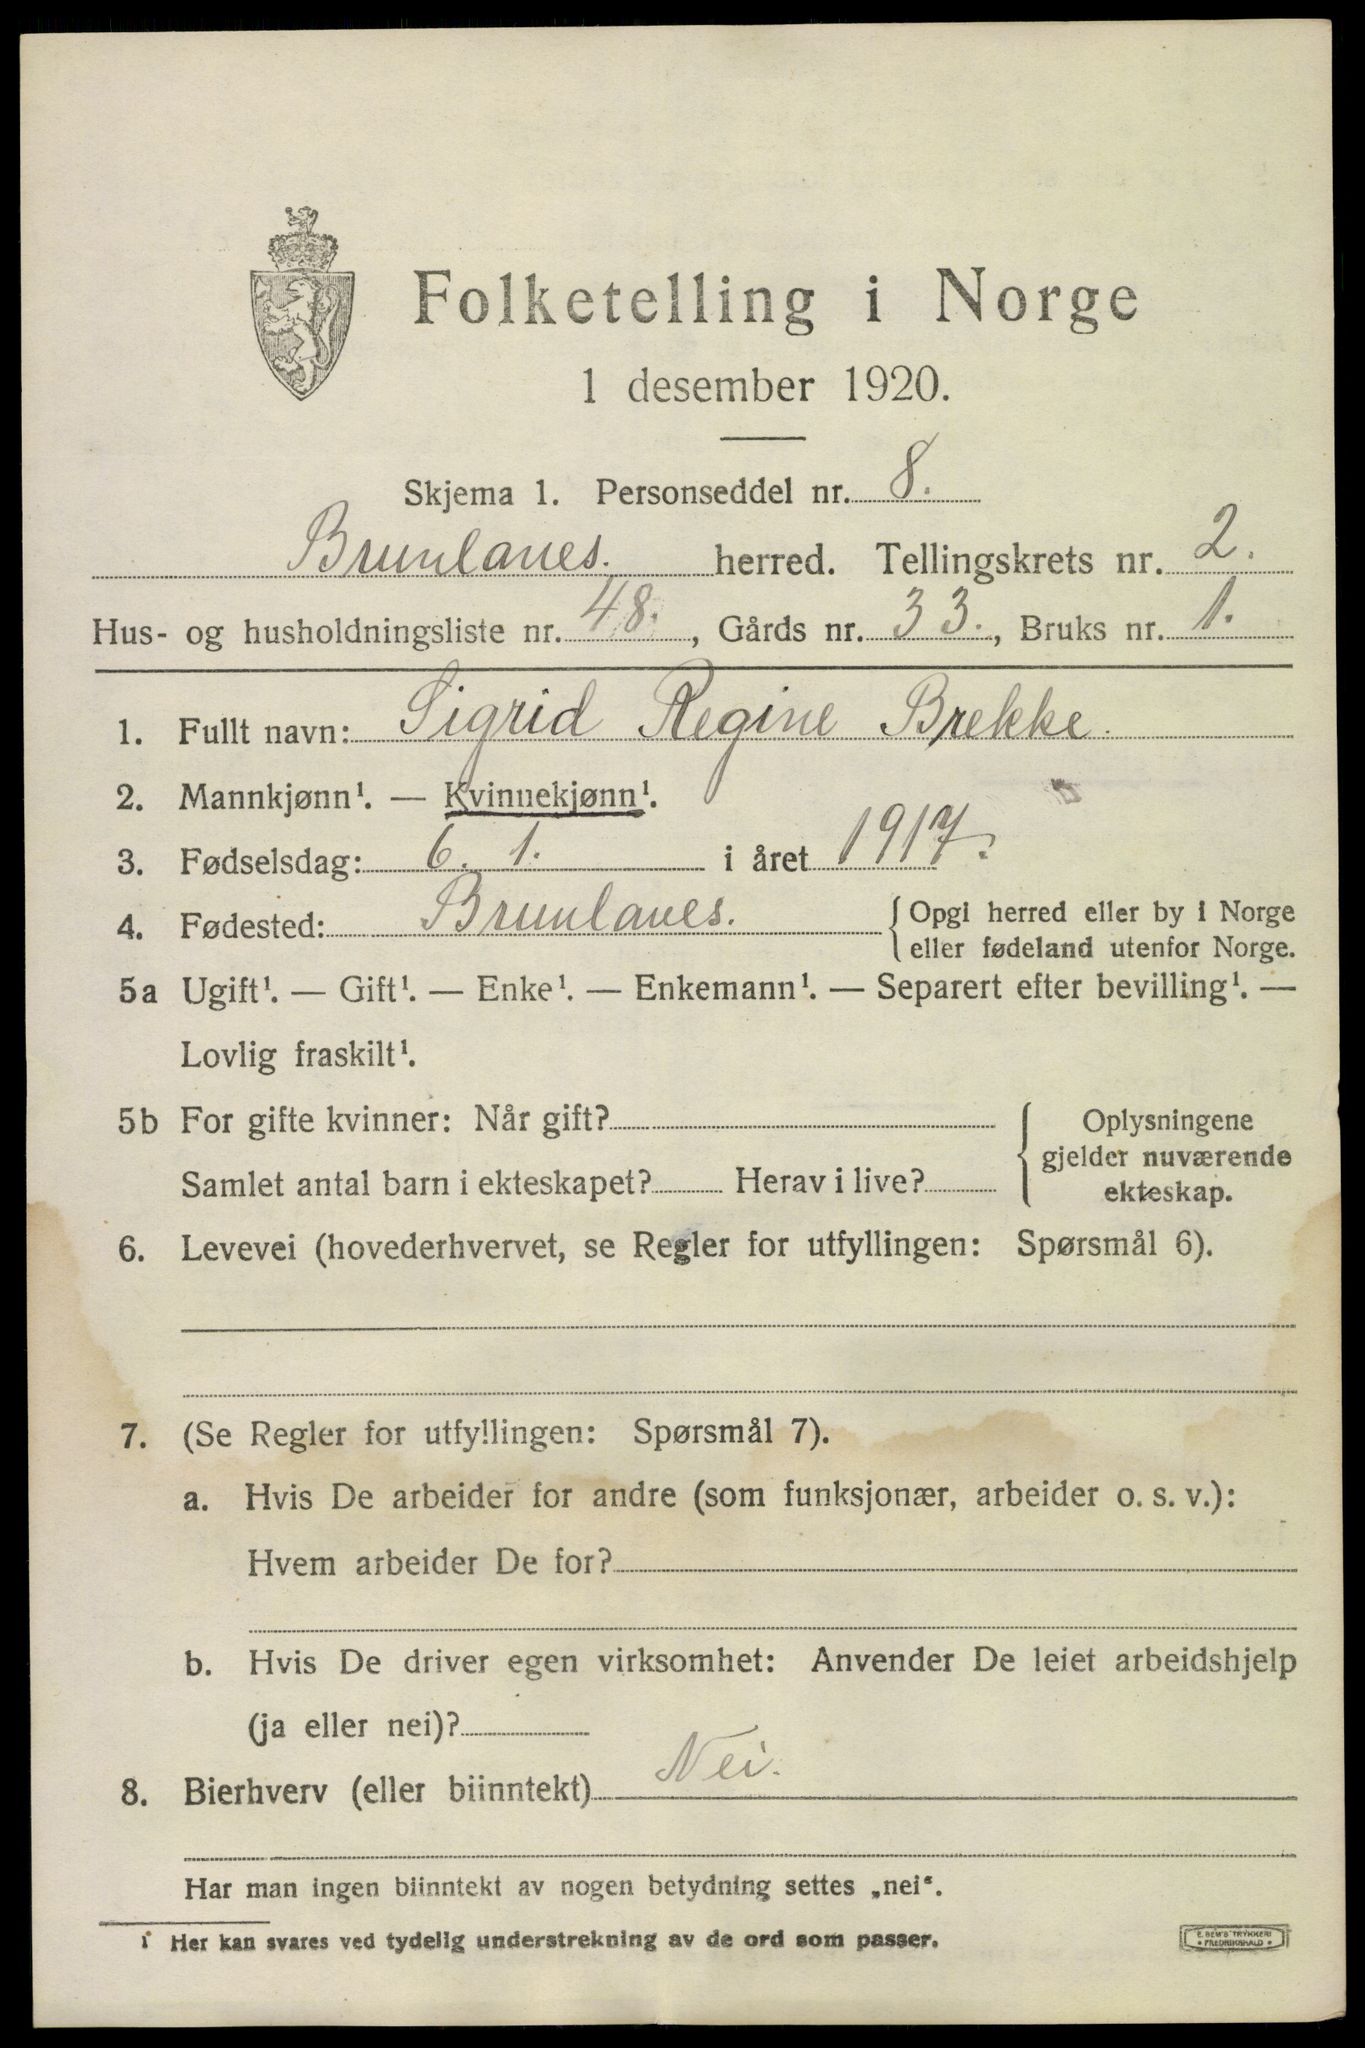 Folketelling i Norge
1 desember 1920.
Skjema 1. Personseddel nr. 8.
Brunlanes. herred. Tellingskrets nr. 2.
Hus- og husholdningsliste nr. 48., Gårds nr. 33., Bruks nr. 1.
1. Fullt navn: Sigrid Regine Brekke.
2. Mannkjønn¹. — Kvinnekjønn¹.
3. Fødselsdag: 6. 1. i året 1917.
4. Fødested: Brunlanes. { Opgi herred eller by i Norge
eller fødeland utenfor Norge.
5a Ugift¹. — Gift¹. — Enke¹. — Enkemann¹. — Separert efter bevilling¹. —
Lovlig fraskilt¹.
5b For gifte kvinner: Når gift? { Oplysningene
gjelder nuværende
Samlet antal barn i ekteskapet? Herav i live? ekteskap.
6. Levevei (hovederhvervet, se Regler for utfyllingen: Spørsmål 6).
7. (Se Regler for utfyllingen: Spørsmål 7).
a. Hvis De arbeider for andre (som funksjonær, arbeider o. s. v.):
Hvem arbeider De for?
b. Hvis De driver egen virksomhet: Anvender De leiet arbeidshjelp
(ja eller nei)?
8. Bierhverv (eller biinntekt) Nei.
Har man ingen biinntekt av nogen betydning settes „nei“.
1 Her kan svares ved tydelig understrekning av de ord som passer.
E. SEM'S TRYKKERI
• FREDRIKSHALD •